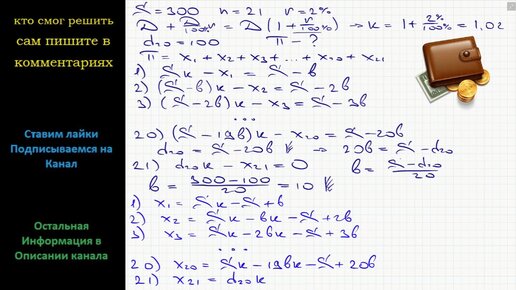 кто смог решить
сам пишите в
комментариях
Ставим лайки
Подписываемся на
Канал
Остальная
Информация в
Описании канала
S = 300 n = 21 r = 2%
D + D r/100% = D (1 + r/100%) ⇒ k = 1 + 2%/100% = 1,02
d₂₀ = 100 П - ?
П = x₁ + x₂ + x₃ + ... + x₂₀ + x₂₁
1) Sк - x₁ = S - в
2) (S-в)к - x₂ = S - 2в
3) (S - 2в)к - x₃ = S - 3в
...
20) (S - 19в)к - x₂₀ = S - 20в
d₂₀ = S - 20в ⇒ 20в = S - d₂₀
21) d₂₀к - x₂₁ = 0 в = (S - d₂₀)/20
в = (300 - 100)/20 = 10
1) x₁ = Sк - S + в
2) x₂ = Sк - вк - S + 2в
3) x₃ = Sк - 2вк - S + 3в
...
20) x₂₀ = Sк - 19вк - S + 20в
21) x₂₁ = d₂₀к